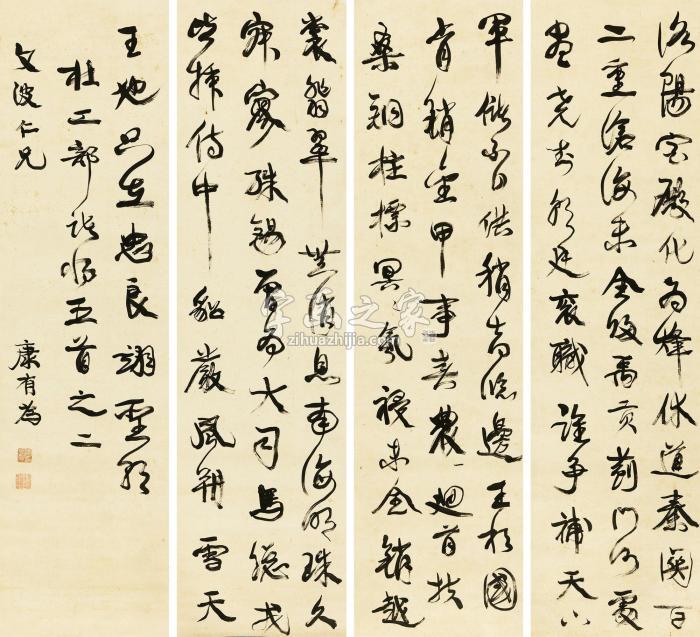 洛陽宮殿化為烽休道秦關百
二重滄海未全歸禹貢薊門何處
盡堯封朝廷袞職誰爭補天下
軍儲不自供稍喜臨邊王相國
肯銷金甲事春農迴首扶
桑銅柱標冥氛祲未全銷越
裳翡翠無消息南海明珠久
寂寥殊錫曾為大司馬總戎
皆插侍中貂嚴風朔雪天
王地只在忠良翊聖朝
杜工部諸將五首之二
文波仁兄
康有為
字画之家
zihuazhijia.com